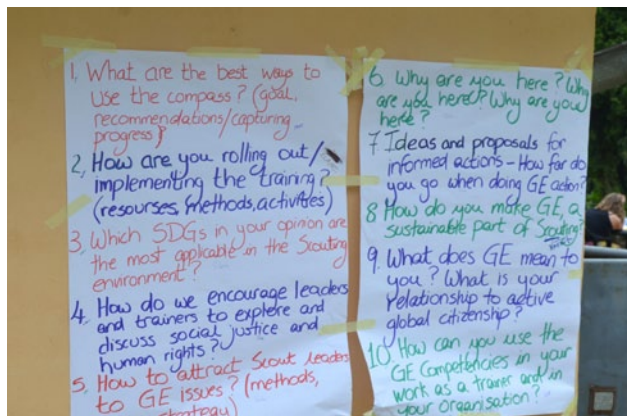 1, What are the best ways to
use the compass? (goal,
recommendations/capturing
progress)
2, How are you rolling out/
implementing the training?
(resourses, methods, activities)
3, Which SDGs in your opinion are
the most applicable in the Scouting
environment?
4, How do we encourage leaders
and trainers to explore and
discuss social justice and
human rights?
5, How to attract Scout leaders
to GE issues? (methods,
strategy)
6 Why are you here? Why
are you here? Why are you
here?
7 Ideas and proposals for
informed actions – How far do
you go when doing GE action?
8 How do you make GE, a
sustainable part of Scouting?
9. What does GE mean to
you? What is your
relationship to active
global citizenship?
10. How can you use the
GE Competencies in your
work as a trainer and in
your organisation?